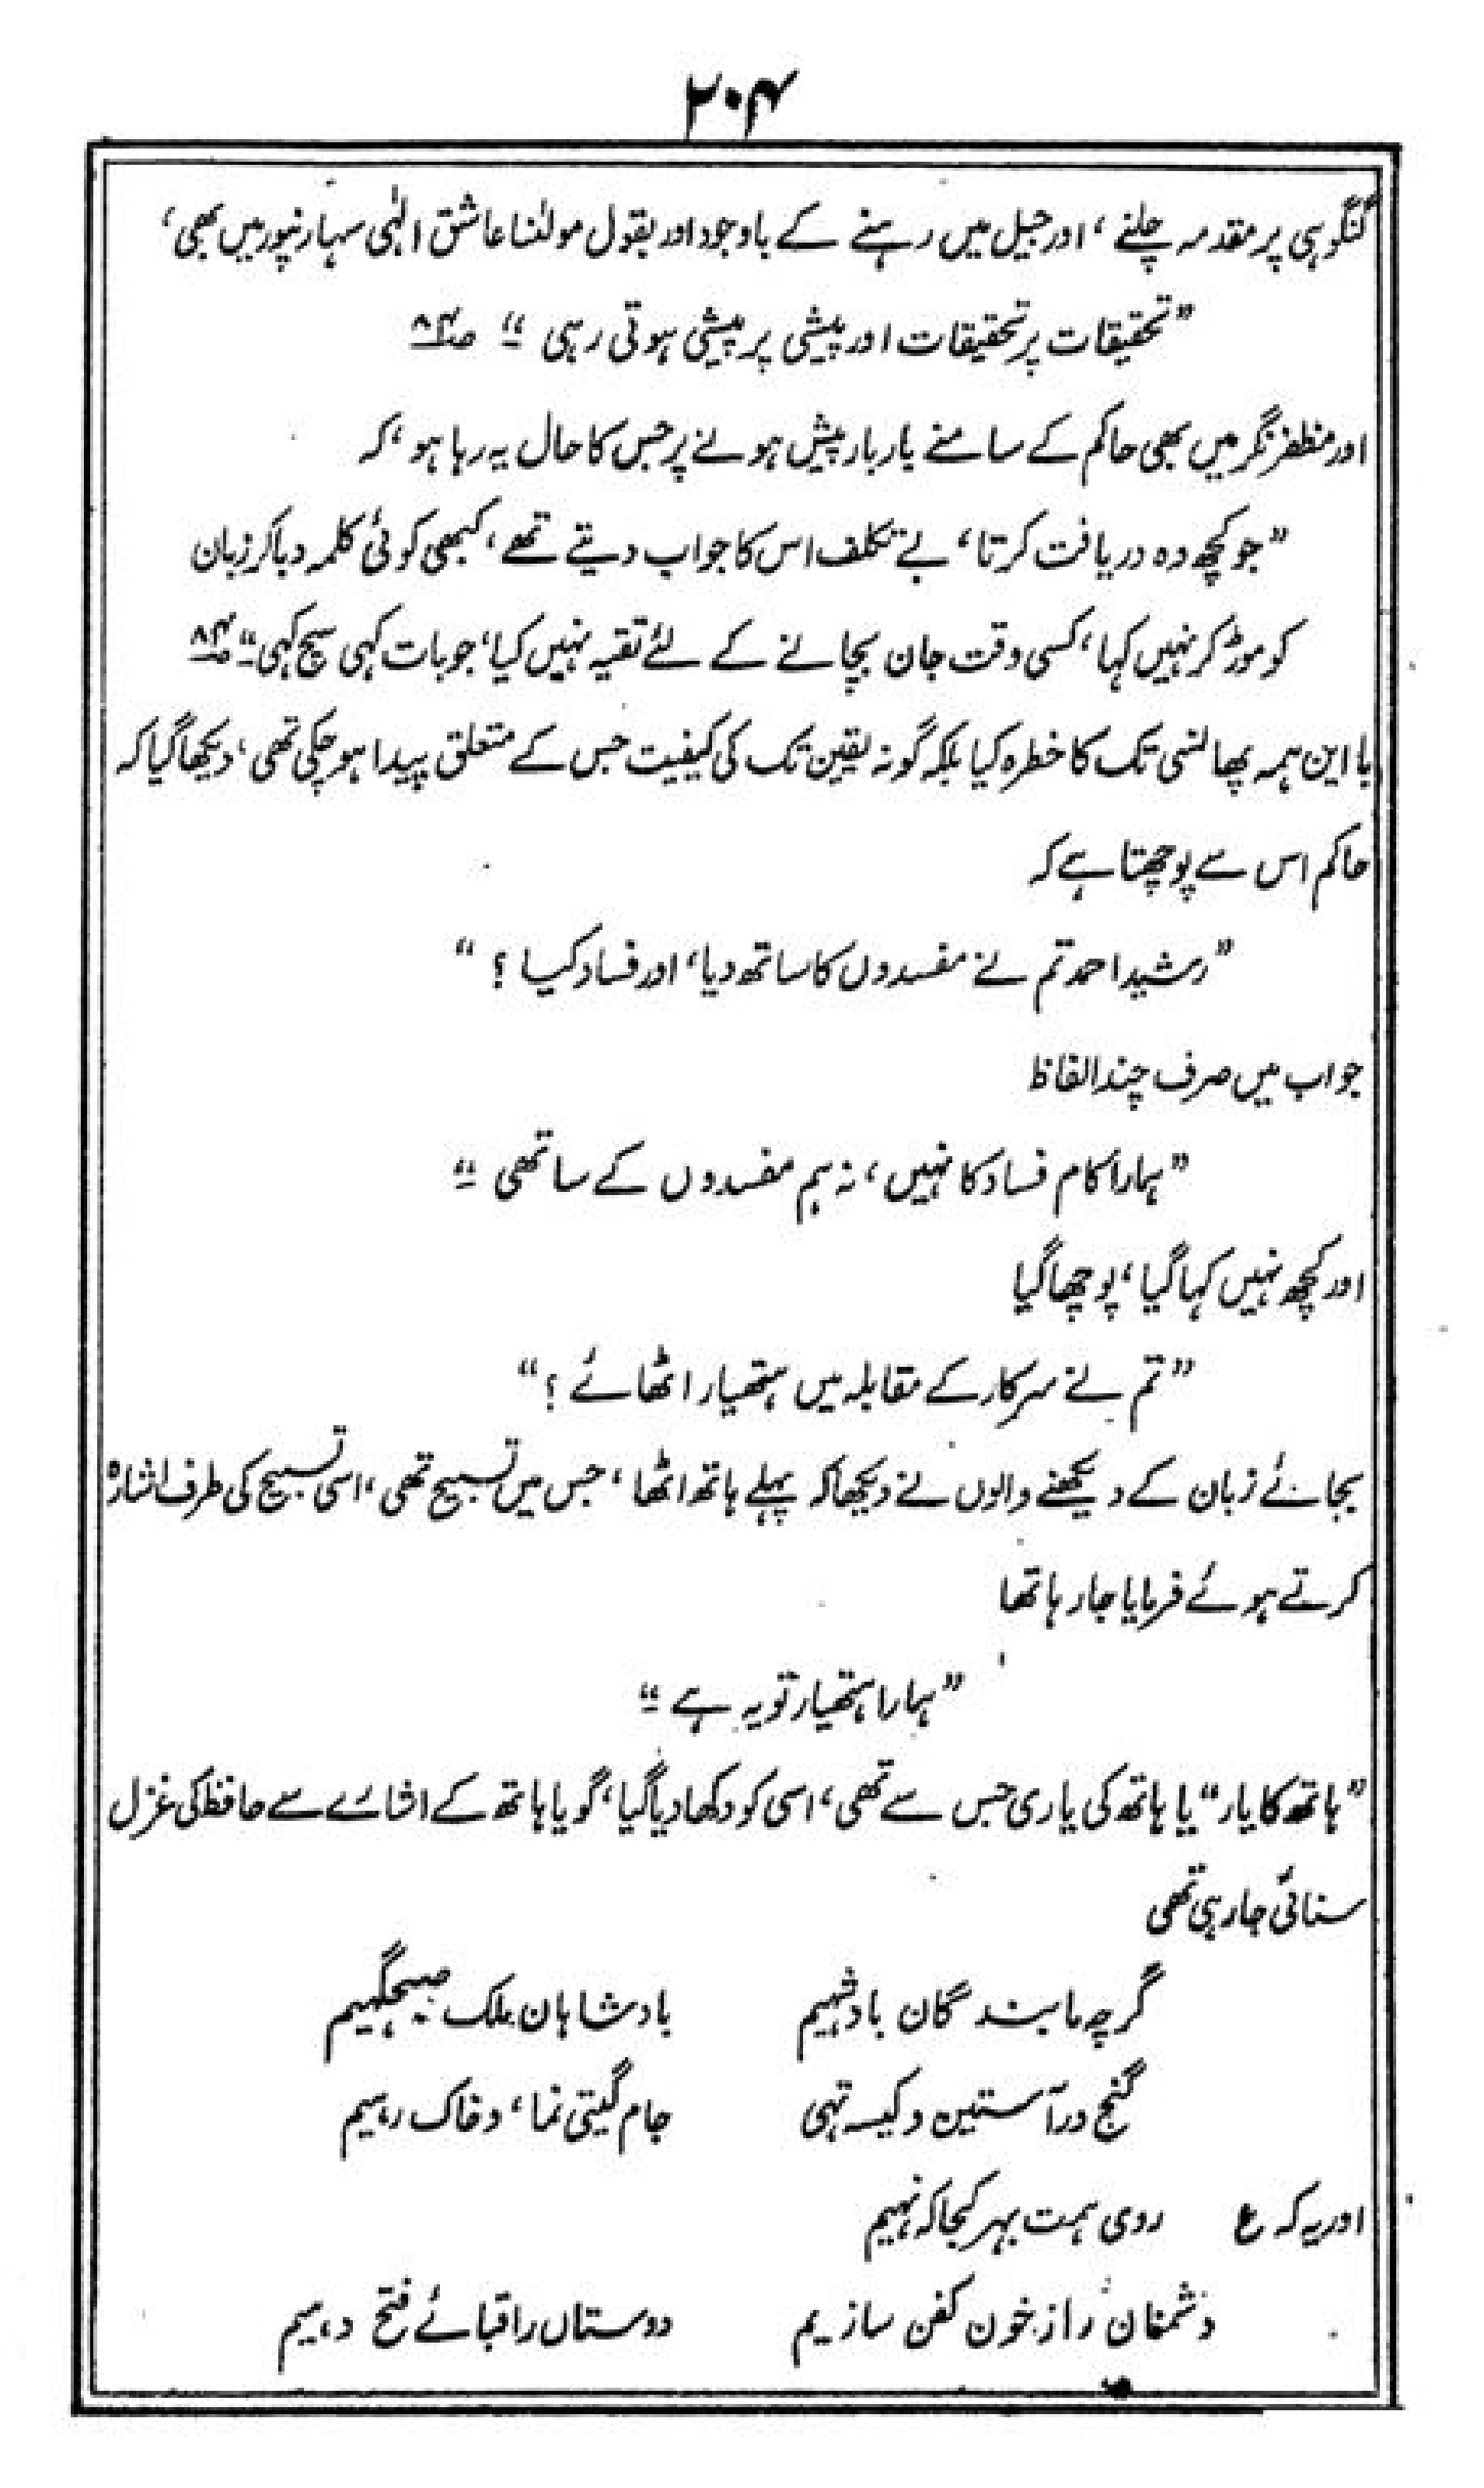 ۲۰۴
گنگوہی پر مقدمہ چلنے ، اور جیل میں رہنے کے باوجود اور بقول مولٰنا عاشق الٰہی سہارنپور میں بھی ،
”تحقیقات پر تحقیقات اور پیشی پر پیشی ہوتی رہی “ ص۸۴
اور مظفر نگر میں بھی حاکم کے سامنے بار بار پیش ہونے پر جس کا حال یہ رہا ہو ، کہ
”جو کچھ وہ دریافت کرتا ، بے تکلف اس کا جواب دیتے تھے ، کبھی کوئی کلمہ دبا کر زبان
کو موڑ کر نہیں کہا ، کسی وقت جان بچانے کے لئے تقیہ نہیں کیا ، جو بات کہی سچ کہی “ ص۸۴
با این ہمہ پھانسی تک کا خطرہ کیا بلکہ گونہ یقین تک کی کیفیت جس کے متعلق پیدا ہو چکی تھی ، دیکھا گیا کہ
حاکم اس سے پوچھتا ہے کہ
”رشید احمد تم نے مفسدوں کا ساتھ دیا ، اور فساد کیا ؟ “
جواب میں صرف چند الفاظ
”ہمارا کام فساد کا نہیں ، نہ ہم مفسدوں کے ساتھی “
اور کچھ نہیں کہا گیا ، پوچھا گیا
”تم نے سرکار کے مقابلہ میں ہتھیار اٹھائے ؟ “
بجائے زبان کے دیکھنے والوں نے دیکھا کہ پہلے ہاتھ اٹھا ، جس میں تسبیح تھی ، اسی تسبیح کی طرف اشارہ
کرتے ہوئے فرمایا جا رہا تھا
”ہمارا ہتھیار تو یہ ہے “
”ہاتھ کا یار “ یا ہاتھ کی یاری جس سے تھی ، اسی کو دکھا دیا گیا ، گویا ہاتھ کے اشارے سے حافظ کی غزل
سنائی جا رہی تھی
گرچہ ما بندگان بادشہیم بادشاہان ملک صبحگہیم
گنج در آستین و کیسہ تہی جام گیتی نما ، و خاک رہیم
اور یہ کہ ع روی ہمت بہر کجا کہ نہیم
دشمنان را ز خون کفن سازیم دوستاں را قبائے فتح دہیم